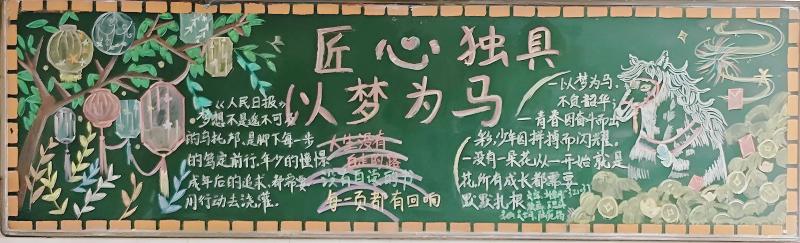 匠心独具
以梦为马
《人民日报》
梦想不是遥不可及
的乌托邦,是脚下每一步
的笃定前行,年少的憧憬
成年后的追求,都需要
用行动去浇灌。
人生没有
白走的路
没有白读的书
每一页都有回响
一以梦为马,
不负韶华;
一青春因奋斗而出
彩,少年因拼搏而闪耀。
一没有一朵花从一开始就是
花,所有成长都需要
默默扎根